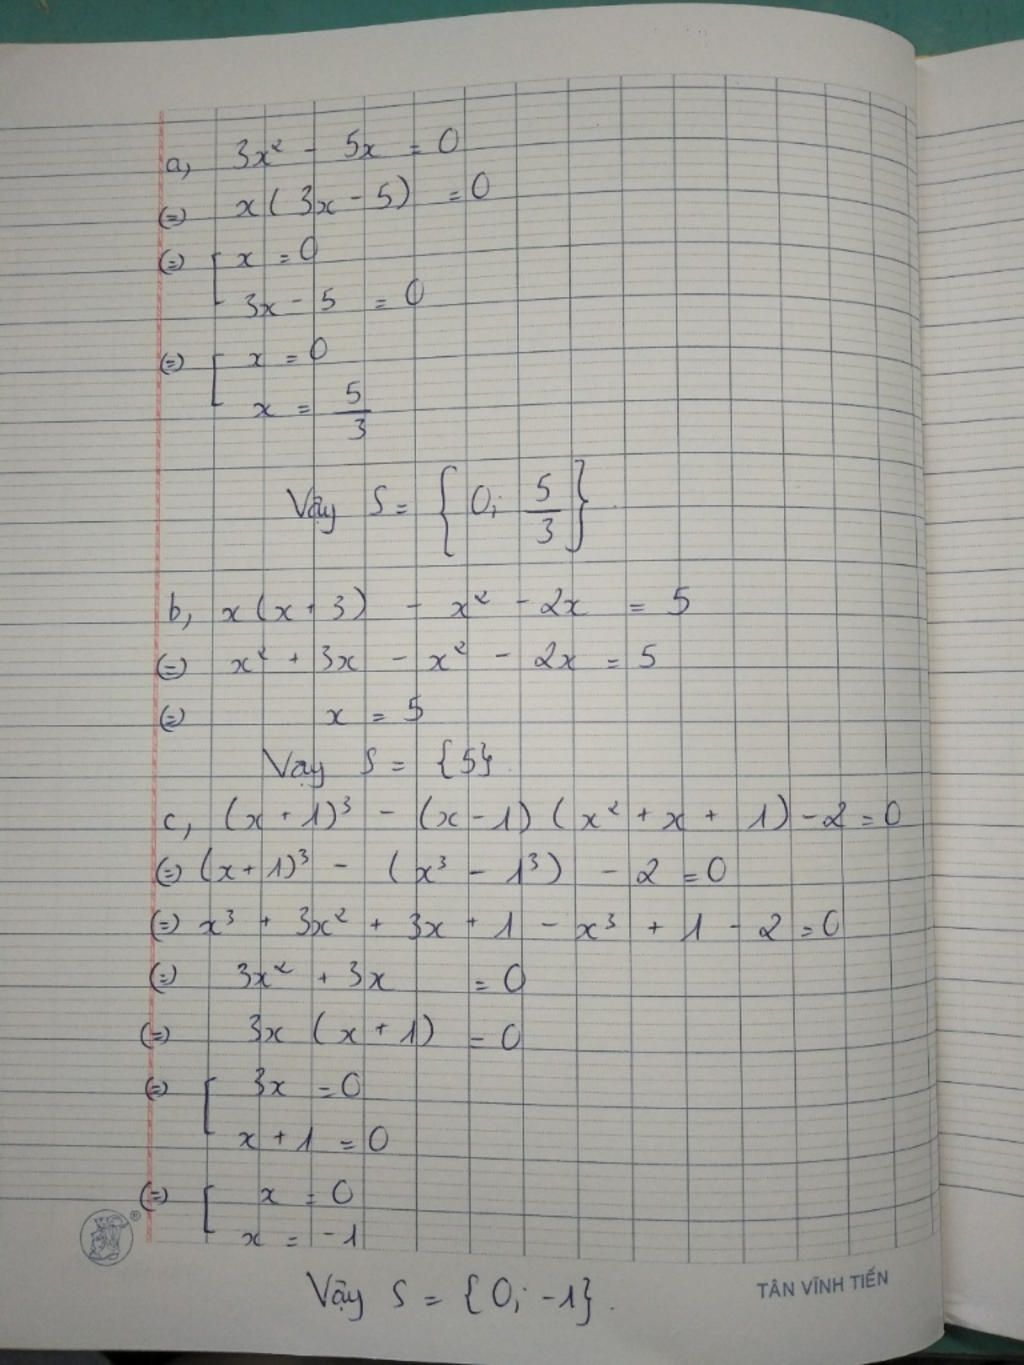 a, 3x² - 5x = 0
(=) x(3x - 5) = 0
(=) [ x = 0
3x - 5 = 0
(=) [ x = 0
x = 5/3
Vậy S = { 0; 5/3 }
b, x(x + 3) - x² - 2x = 5
(=) x² + 3x - x² - 2x = 5
(=) x = 5
Vay S = {5}.
c, (x + 1)³ - (x - 1)(x² + x + 1) - 2 = 0
(=) (x + 1)³ - (x³ - 1³) - 2 = 0
(=) x³ + 3x² + 3x + 1 - x³ + 1 - 2 = 0
(=) 3x² + 3x = 0
(=) 3x (x + 1) = 0
(=) [ 3x = 0
x + 1 = 0
(=) [ x = 0
x = -1
Vậy S = {0; -1}.
TÂN VĨNH TIẾN